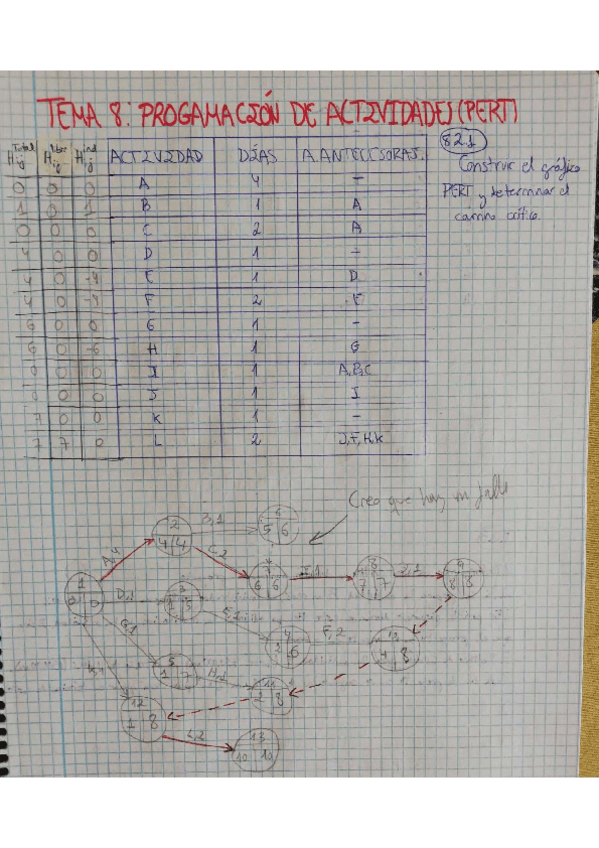 TEMA 8: PROGAMACIÓN DE ACTIVIDADES (PERT)
8.2.1
Construir el gráfico
PERT y determinar el
camino crítico.
H Total ij H libre ij H ind ij ACTIVIDAD DÍAS A. ANTECESORAS.
0 0 0 A 4 -
1 0 1 B 1 A
0 0 0 C 2 A
4 0 0 D 1 -
4 0 -4 E 1 D
4 0 -4 F 2 E
6 0 0 G 1 -
6 0 -6 H 1 G
0 0 0 I 1 A,B,C
0 0 0 J 1 I
7 0 0 K 1 -
7 7 0 L 2 J,F,H,K
Creo que hay un fallo
2 4 4
B,1
6 5 6
A,4
C,2
6 6
I,1
8 7 7
J,1
9 8 8
1 0 0
D,1
3 1
E,1
6
F,2
4 8
G,1
5 1 7
H,1
11 2 8
12 1 8
L,2
13 10 10